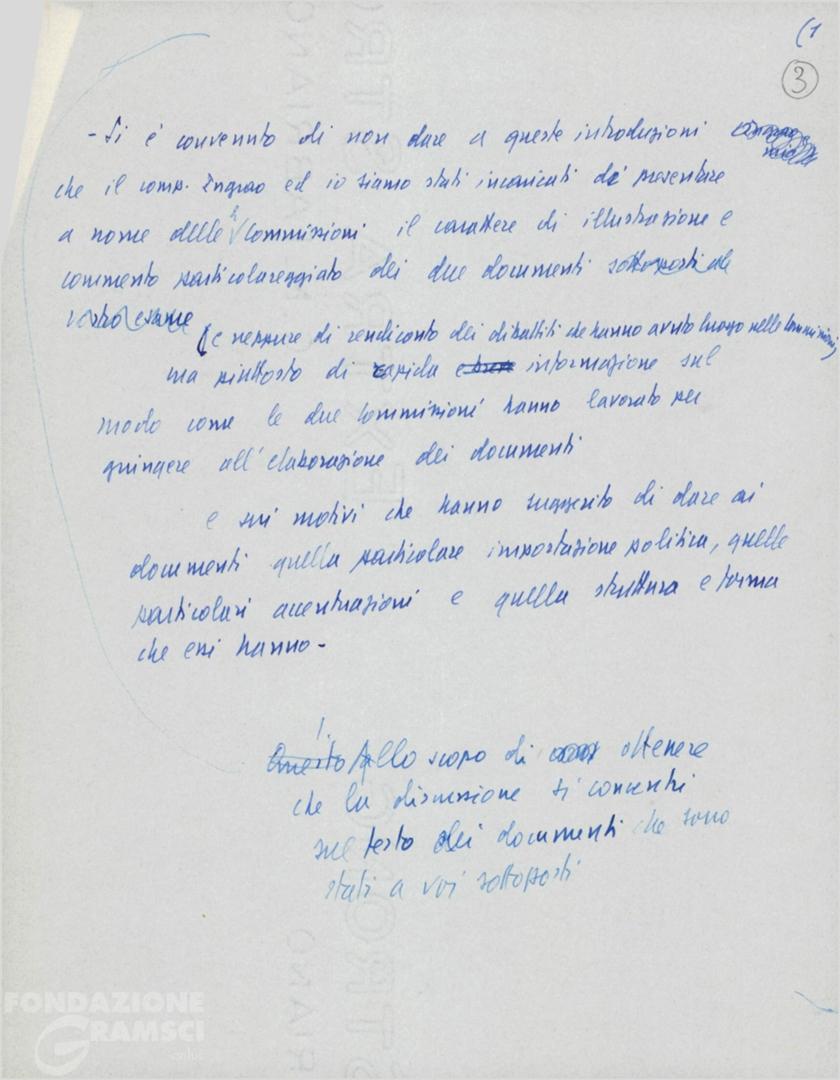 (1
3
- Si è convenuto di non dare a queste introduzioni
che il comp. Ingrao ed io siamo stati incaricati di presentare
a nome delle Commissioni il carattere di illustrazione e
commento particolareggiato dei due documenti sottoposti al
vostro esame
(e neppure di rendiconto dei dibattiti che hanno avuto luogo nelle Commissioni)
ma piuttosto di rapida e informazione sul
modo come le due Commissioni hanno lavorato per
giungere all'elaborazione dei documenti
e sui motivi che hanno suggerito di dare ai
documenti quella particolare impostazione politica, quelle
particolari accentuazioni e quella struttura e forma
che essi hanno -
Questo Allo scopo di ottenere
che la discussione si concentri
sul testo dei documenti che sono
stati a voi sottoposti
FONDAZIONE
GRAMSCI
onlus